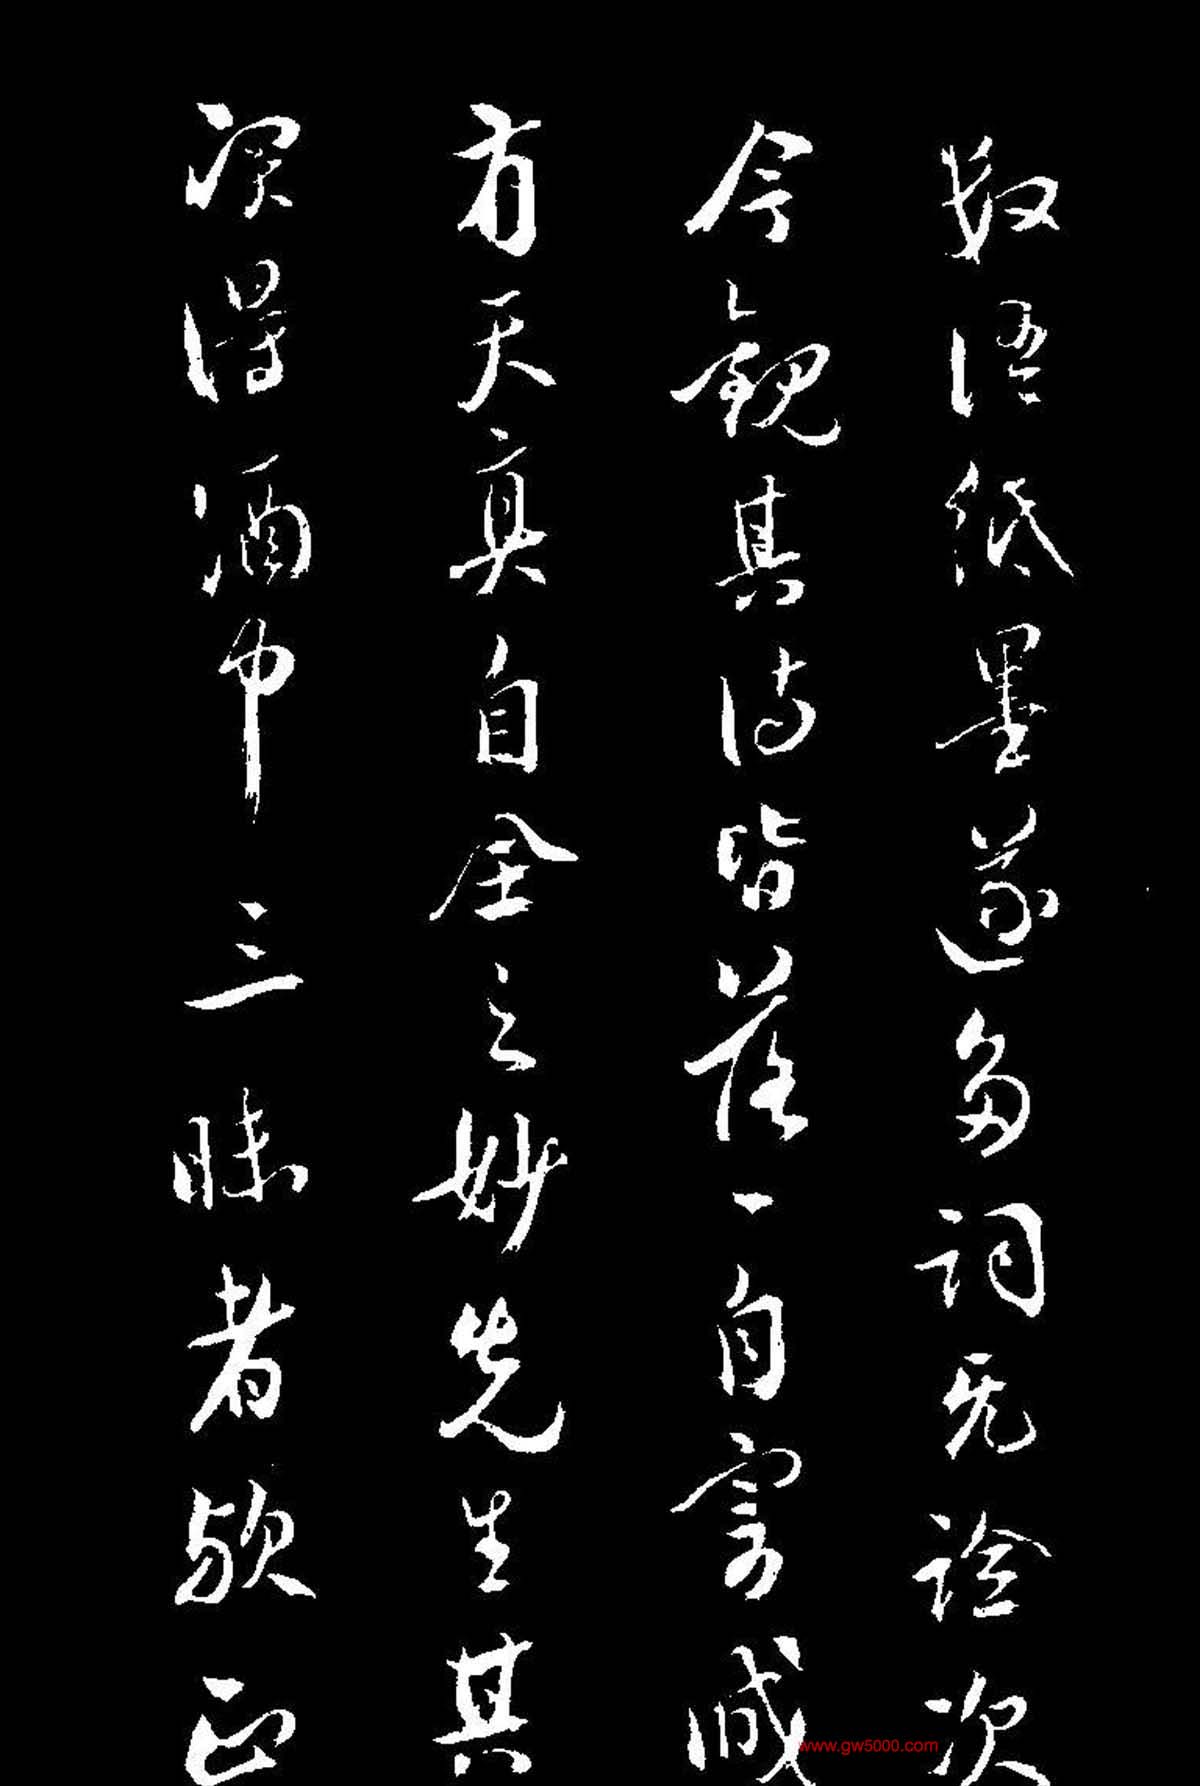 数语纸墨遂多词无诠次
今观其诗皆落一自写诚
有天真自全之妙先生其
深得酒中三昧者欤正
www.gw5000.com